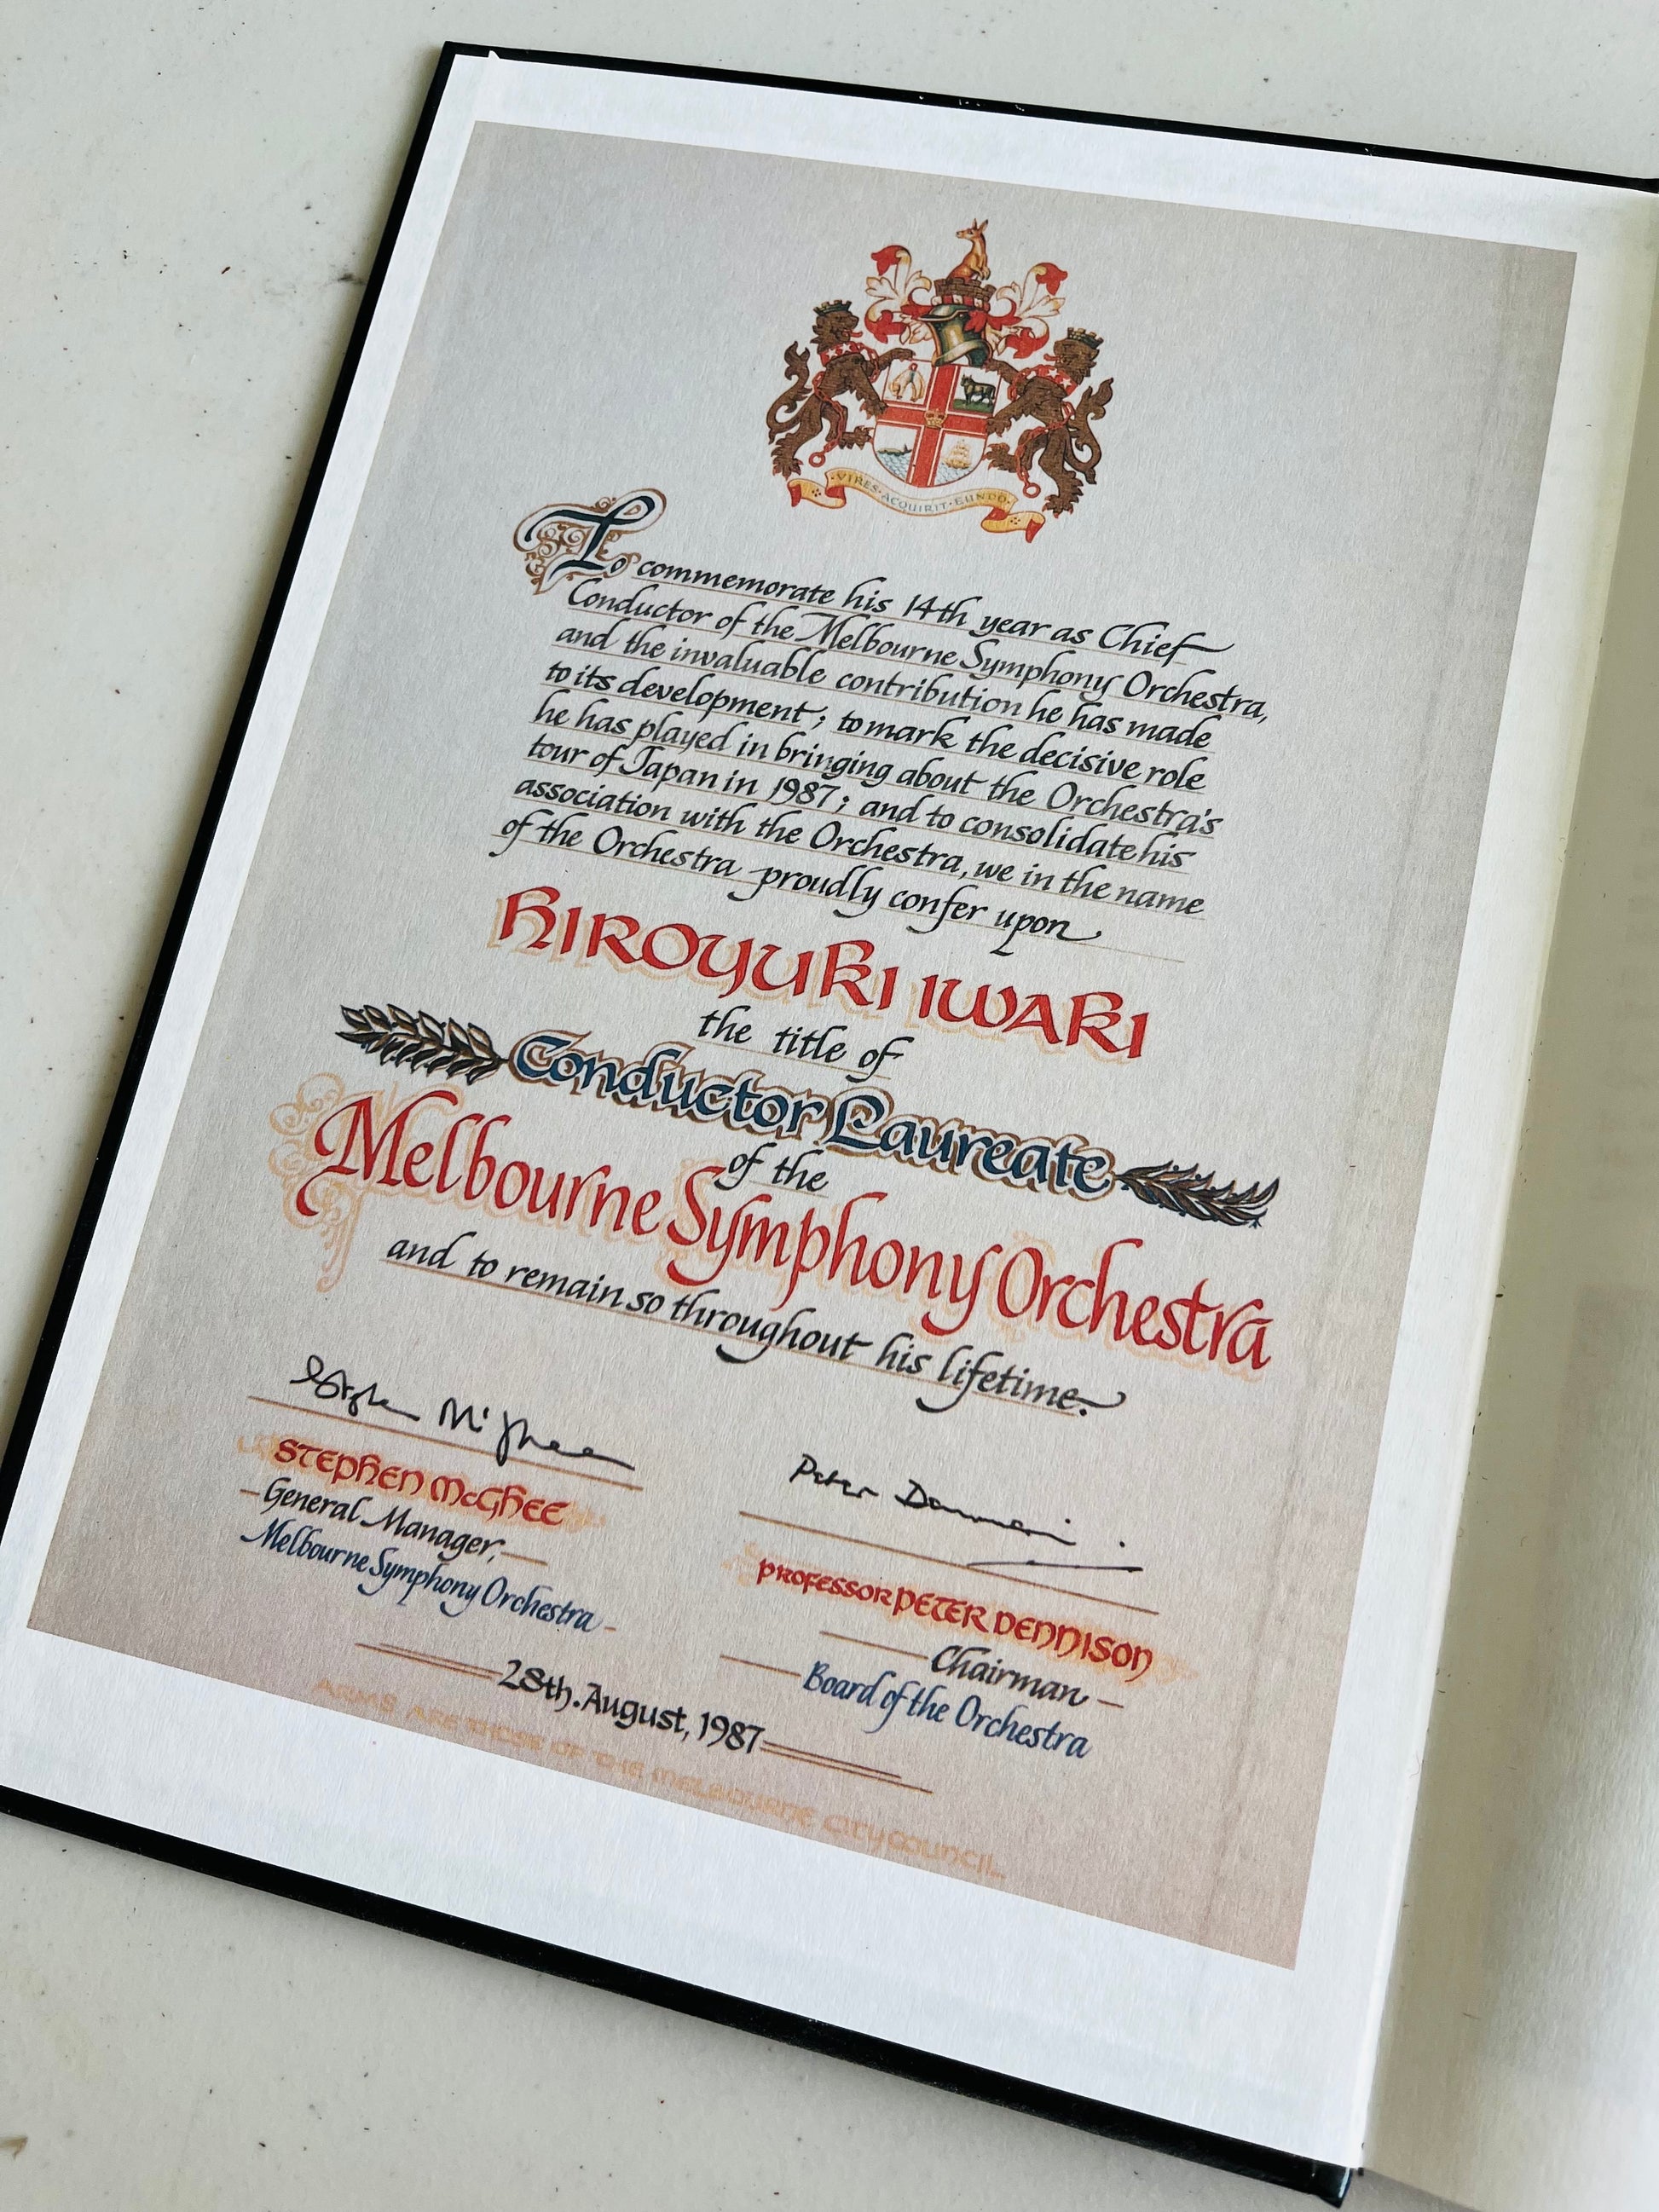 VIRES·ACQUIRIT·EUNDO
To commemorate his 14th year as Chief
Conductor of the Melbourne Symphony Orchestra,
and the invaluable contribution he has made
to its development; to mark the decisive role
he has played in bringing about the Orchestra's
tour of Japan in 1987; and to consolidate his
association with the Orchestra, we in the name
of the Orchestra proudly confer upon
HIROYUKI IWAKI
the title of
Conductor Laureate
of the
Melbourne Symphony Orchestra
and to remain so throughout his lifetime.
Stephen McGhee
STEPHEN McGHEE
General Manager,
Melbourne Symphony Orchestra
Peter Dennison
PROFESSOR PETER DENNISON
Chairman
Board of the Orchestra
28th. August, 1987
ARMS ARE THOSE OF THE MELBOURNE CITY COUNCIL